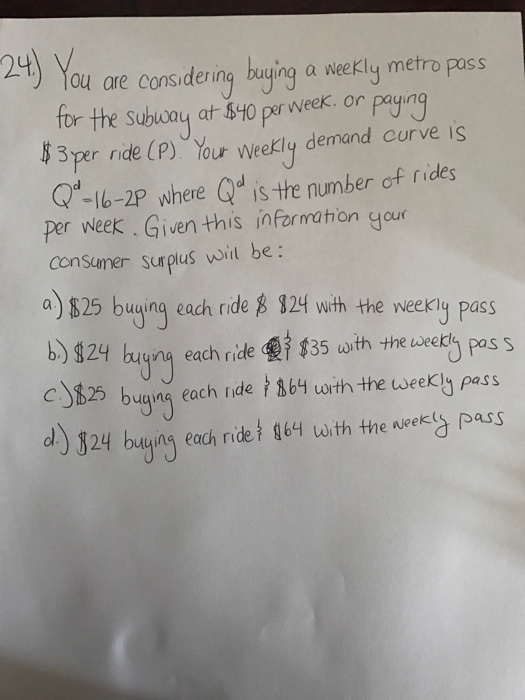 24.) You are considering buying a weekly metro pass
for the subway at $40 per week. or paying
$3 per ride (P). Your weekly demand curve is
Qᵈ=16-2P where Qᵈ is the number of rides
per week. Given this information your
consumer surplus will be:
a.) $25 buying each ride & $24 with the weekly pass
b.) $24 buying each ride & $35 with the weekly pass
c.) $25 buying each ride & $64 with the weekly pass
d.) $24 buying each ride & $64 with the weekly pass